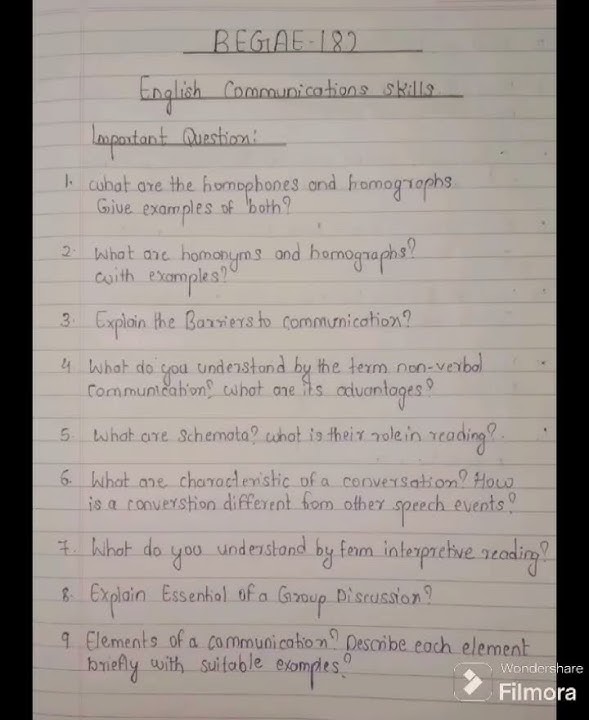 BEGAE-182
English Communications skills
Important Question:
1. what are the homophones and homographs
Give examples of both?
2. What are homonyms and homographs?
with examples?
3. Explain the Barriers to communication?
4 What do you understand by the term non-verbal
communication? what are its advantages?
5. what are schemata? what is their role in reading?
6. What are characteristic of a conversation? How
is a converstion different from other speech events?
7. What do you understand by ferm interpretive reading?
8. Explain Essential of a Group Discussion?
9 Elements of a communication? Describe each element
briefly with suitable examples?
Wondershare
Filmora